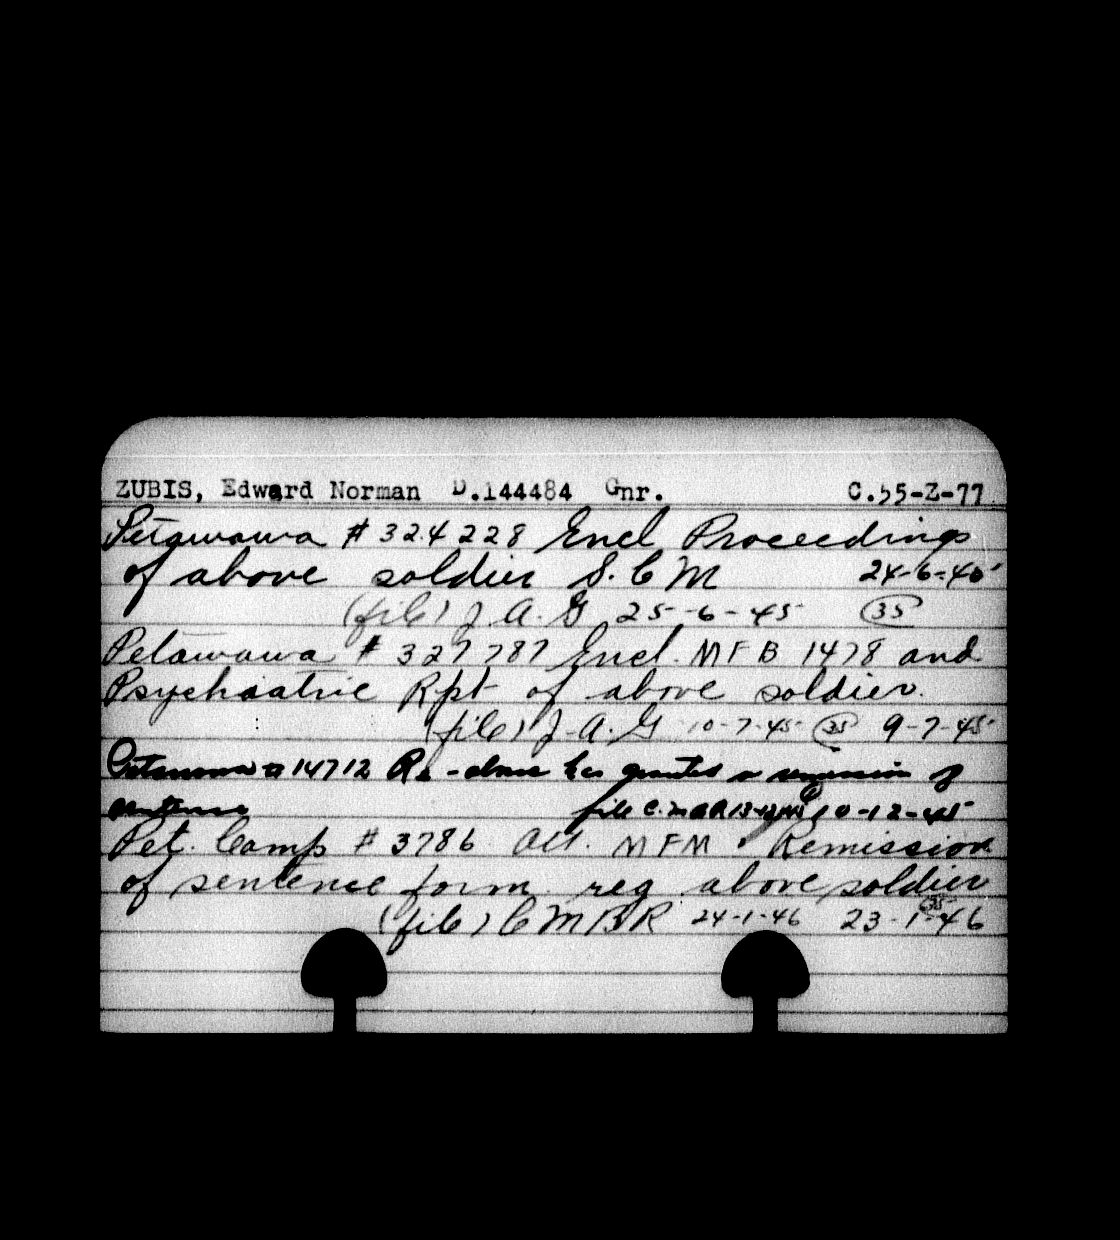 ZUBIS, Edward Norman D.144484 Gnr. C.55-Z-77
Petawawa # 324228 Encl Proceedings
of above soldier S.C M 24-6-45
(file) J A. G 25-6-45 35
Petawawa # 327787 Encl. MFB 1478 and
Psychiatric Rpt of above soldier.
(file) J-A.G 10-7-45 35 9-7-45
# 14712 Re - above has granted a remission of
sentence file 10-12-45
Pet. Camp # 3786 Att. MFM Remission
of sentence form reg above soldier
(file) C M B R 24-1-46 35 23-1-46